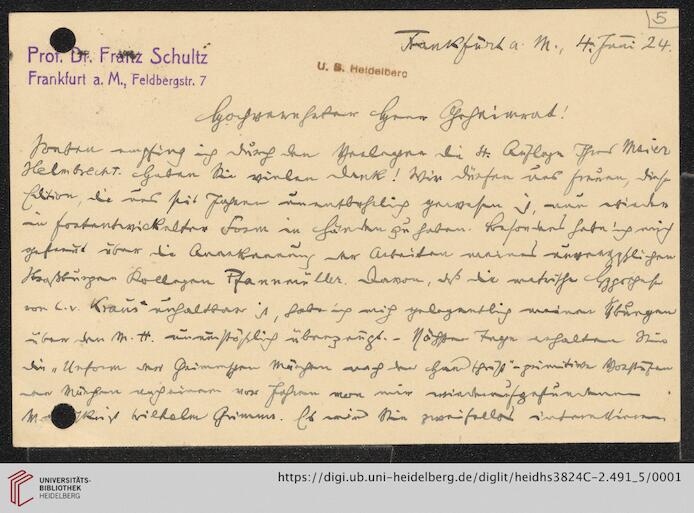 5
Prof. Dr. Franz Schultz
Frankfurt a. M., Feldbergstr. 7
U. B. Heidelberg
Frankfurt a. M., 4. Juni 24.
Hochverehrter Herr Geheimrat!
Soeben empfing ich durch den Verleger die 4. Auflage Ihres Meier
Helmbrecht. Haben Sie vielen Dank! Wir dürfen uns freuen, diese
Edition, die uns seit Jahren unentbehrlich gewesen ist, nun wieder
in fortentwickelter Form in Händen zu haben. Besonders habe ich mich
gefreut über die Anerkennung der Arbeiten meines
Straßburger Kollegen Pfannmüller. Davon, daß die metrische Hypothese
von C. v. Kraus unhaltbar ist, habe ich mich gelegentlich meiner Übungen
über den M. H. unumstößlich überzeugt. - Nächster Tage erhalten Sie
die "Urform der Grimmschen Märchen nach der Handschrift"
der Märchen nach einem vor Jahren von mir wiederaufgefundenen
Wilhelm Grimms. Es wird Sie zweifellos interessieren
UNIVERSITÄTS-
BIBLIOTHEK
HEIDELBERG
https://digi.ub.uni-heidelberg.de/diglit/heidhs3824C-2.491_5/0001